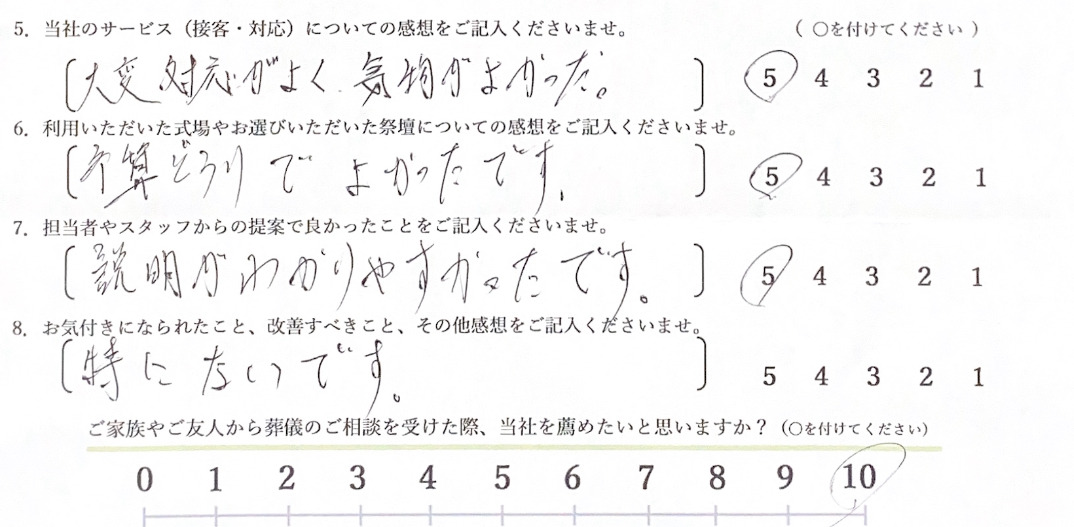 5. 当社のサービス（接客・対応）についての感想をご記入くださいませ。 （ ○を付けてください ）
大変対応がよく、気持がよかった。 5 4 3 2 1
6. 利用いただいた式場やお選びいただいた祭壇についての感想をご記入くださいませ。
予算どうりでよかったです。 5 4 3 2 1
7. 担当者やスタッフからの提案で良かったことをご記入くださいませ。
説明がわかりやすかったです。 5 4 3 2 1
8. お気付きになられたこと、改善すべきこと、その他感想をご記入くださいませ。
特にないです。 5 4 3 2 1
ご家族やご友人から葬儀のご相談を受けた際、当社を薦めたいと思いますか？（○を付けてください）
0 1 2 3 4 5 6 7 8 9 10